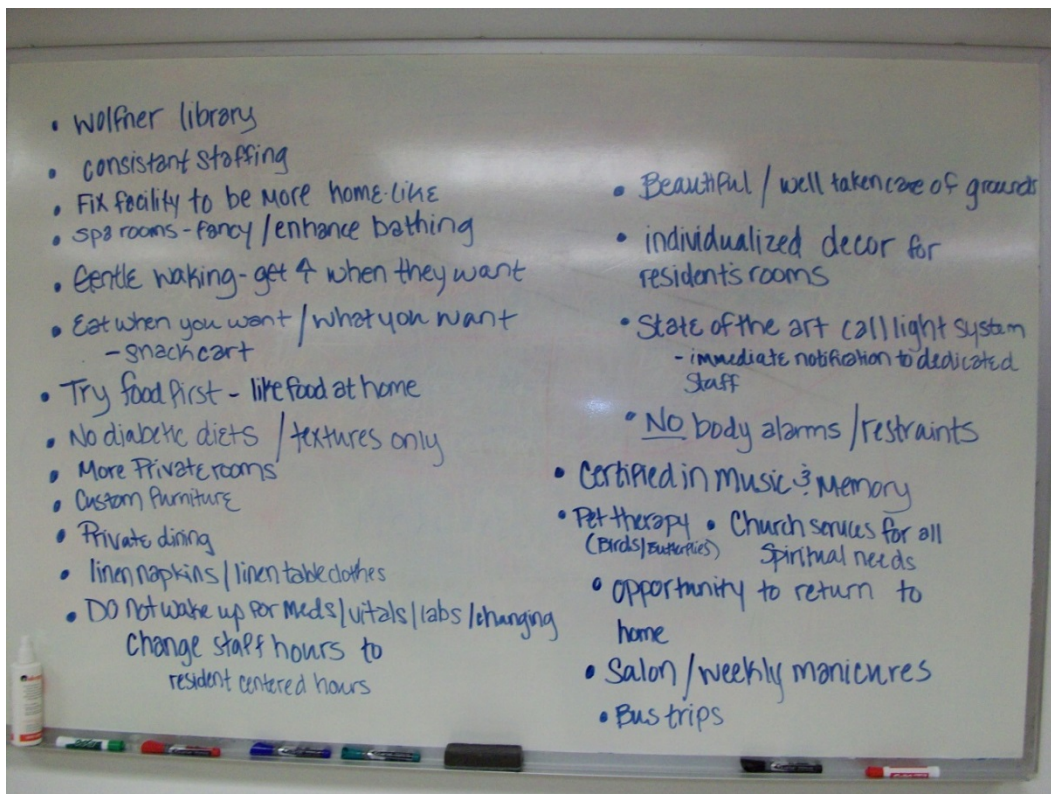 • Wolfner library
• consistant staffing
• Fix facility to be more home-like
• spa rooms - fancy / enhance bathing
• Gentle waking - get ↑ when they want
• Eat when you want / what you want
- snack cart
• Try food first - like food at home
• No diabetic diets / textures only
• More Private rooms
• Custom furniture
• Private dining
• linen napkins / linen table clothes
• DO not wake up for meds / vitals / labs / changing
change staff hours to
resident centered hours
• Beautiful / well taken care of grounds
• individualized decor for
resident's rooms
• State of the art call light system
- immediate notification to dedicated
staff
• NO body alarms / restraints
• Certified in Music & Memory
• Pet therapy • Church services for all
(Birds/Butterflies) Spiritual needs
• opportunity to return to
home
• Salon / weekly manicures
• Bus trips